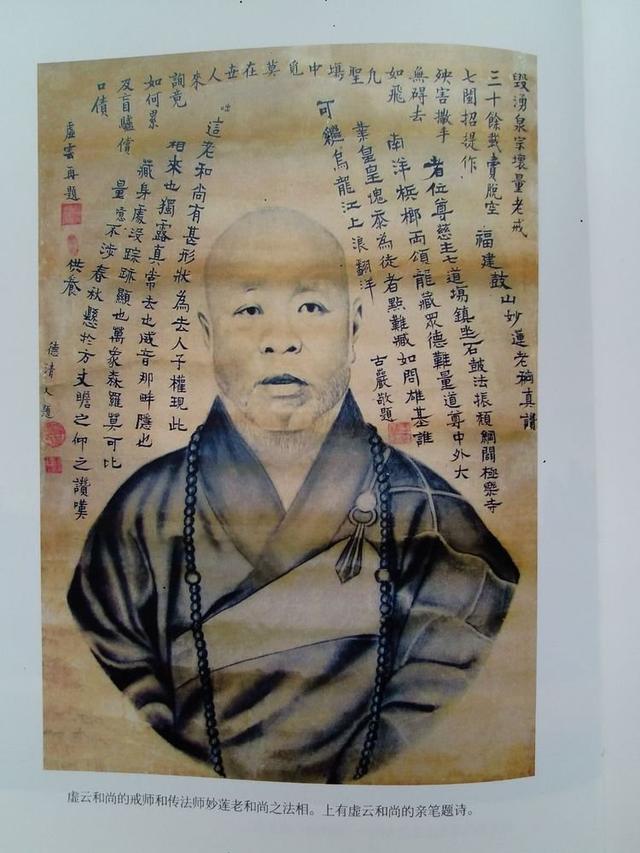 毀湧泉宗壞量老戒
三十餘載賣脫空
七閩招提作
殃害撒手
無碍去
如飛
凡聖壩中覓莫在世人來
詢竟
如何累
及盲驢償
口債
虛雲再題
福建鼓山妙蓮老真讚
者位尊慈主七道場鎮坐石鼓法振頹綱開極樂寺
南洋梹榔兩頌龍藏眾德難量道尊中外大
業皇皇愧忝為徒者點難臧如問雄基誰
可鑑烏龍江上浪翻洋
古巖敬題
咄
這老和尚有甚形狀為去人子權現此
相來也獨露真常去也威音那畔隱也
藏身處沒踪跡顯也萬象森羅莫可比
量意不涉春秋懸於方丈瞻之仰之讚嘆
供養
德清又題
虚云和尚的戒师和传法师妙莲老和尚之法相。上有虚云和尚的亲笔题诗。